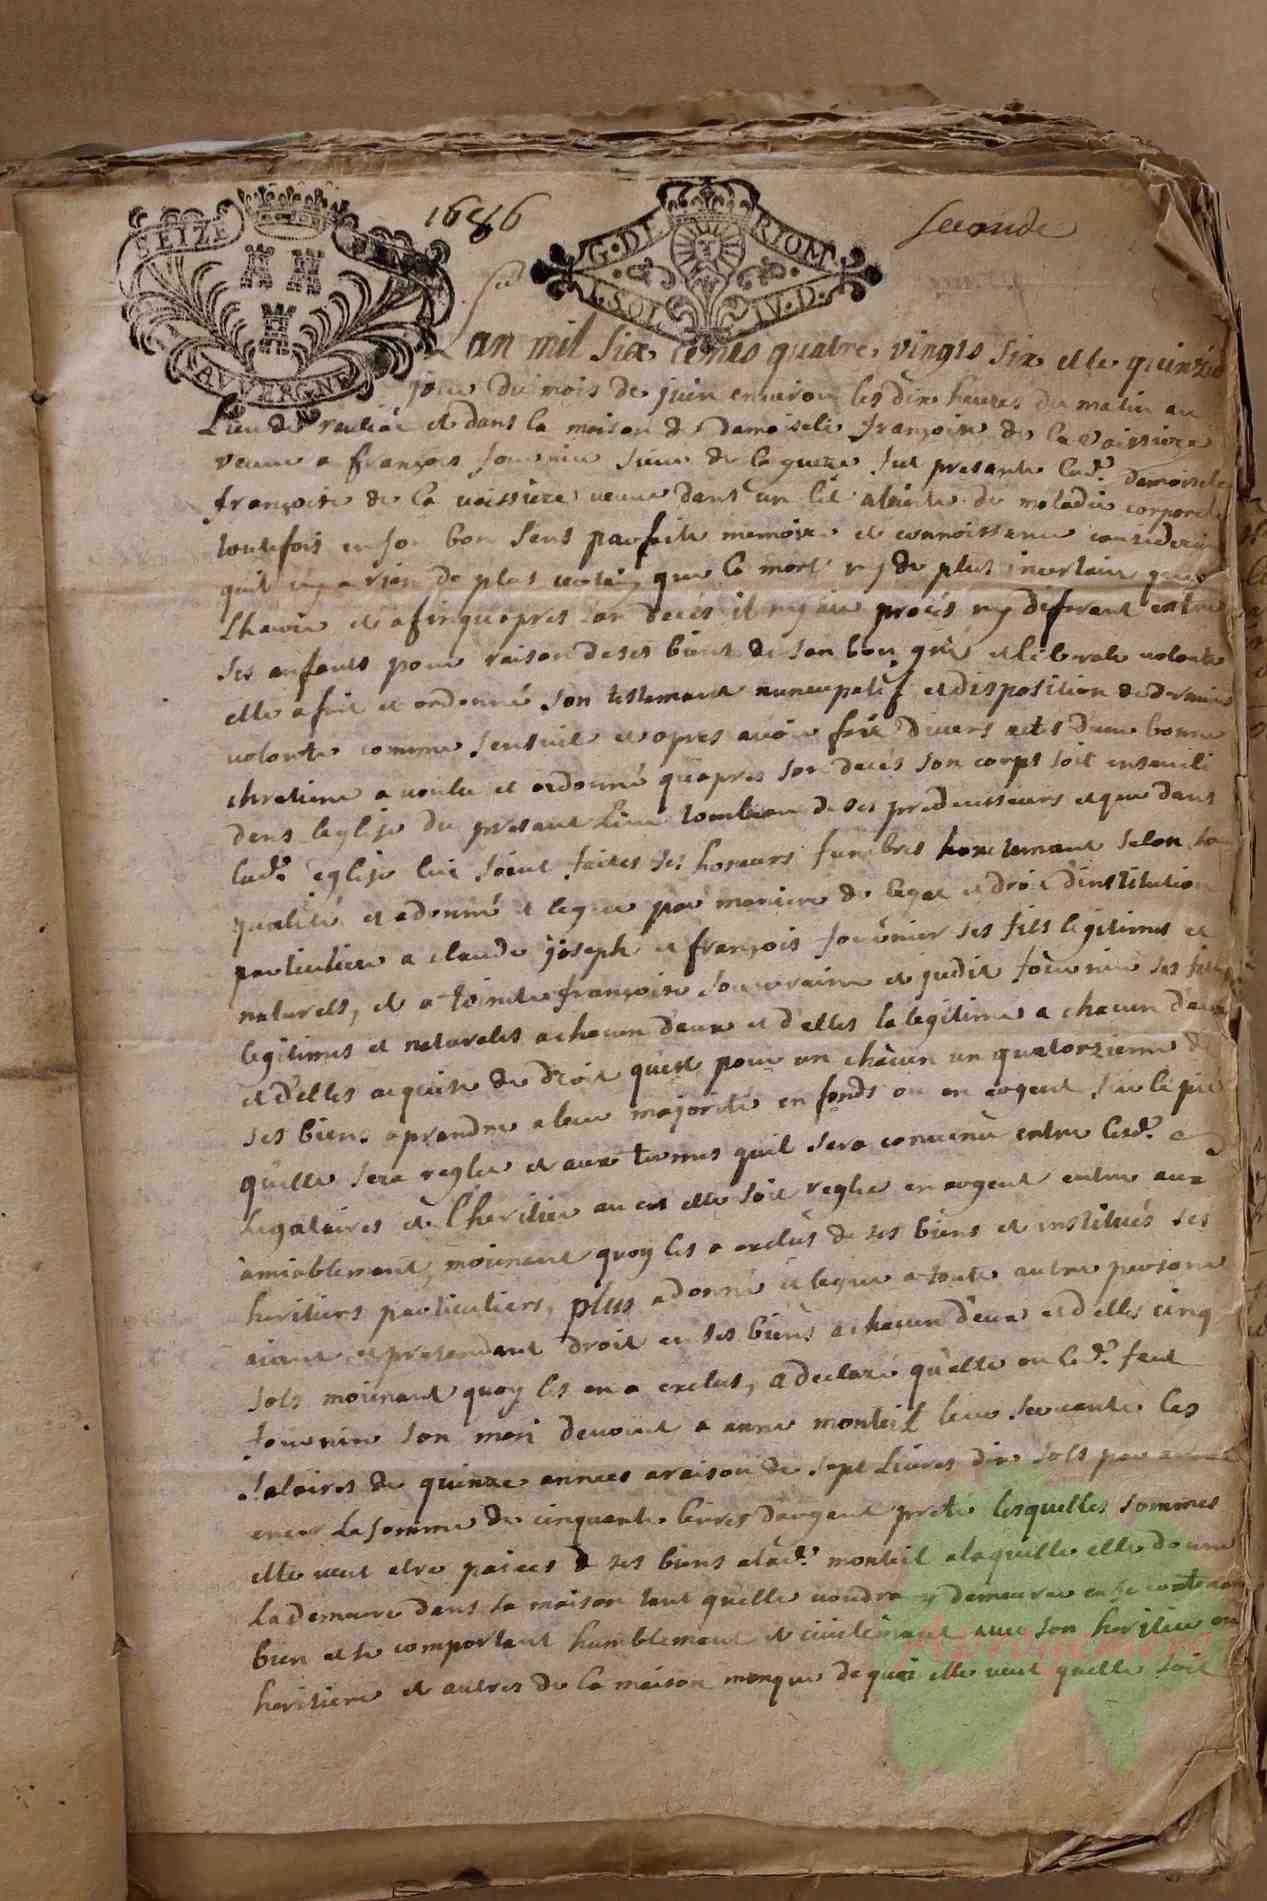 1686
seconde
SEIZE DEN
G. DE RIOM
I. SOL IV. D.
AVVERGNE
Lan mil six cents quatre vingts six et le quinzie
jour du mois de juin environ les dix heures du matin au
Lieu de et dans la maison de damoiselle françoise de la vaissiere
veuve a françois sieur de fut presante lad.e damoiselle
françoise de la vaissiere veuve dans un lit atainte de maladie corporelle
toutefois en son bon sens parfaite memoire et connoissance considerant
quil ny a rien de plus certain que la mort ny de plus incertain que
Lheure et afin quapres son deces il ny aie procés ny diferent entre
ses enfants pour raison de ses biens de son bon gré et liberale volonte
elle a fait et ordonné son testemant nuncupatif et disposition de derniere
volonte comme sensuit et apres avoir fait divers actes dune bonne
chretiene a voulu et ordonné quapres son decés son corps soit enseveli
dens leglise du presant Lieu tombeau de ses predecesseurs et que dans
lad.e eglise lui soient faites ses honeurs funebres honetemant selon sa
qualité et a donné et legue par maniere de legat et droit dinstitution
particuliere a claude joseph et françois ses fils legitimes et
naturels, et a toinete françoise souveraine et judit ses filles
legitimes et naturales a chacun deux et delles la legitime a chacun deux
et delles acquise de droit quest pour un chacun un quatorzieme de
ses biens a prandre a leur majorité en fonds ou en argent sur le pie
quelle sera reglee et aux termes quil sera convenu entre lesd.
Legataires et Lheritier au cas elle soit reglee en argent entre aux
amiablemant, moienant quoy les a exclus de ses biens et institués ses
heritiers particuliers, plus a donné et legue a toute autre persone
aiant et pretendant droit en ses biens a chacun deux et delles cinq
sols moienant quoy les en a exclus, a declaré quelle ou led. feut
son mari devoient a anne monteil leur servante les
salaires de quinze annees a raison de sept Livres dix sols par
encor La somme de cinquante livres dargent preté lesquelles sommes
elle veut etre paiees de ses biens a lad.e monteil a laquelle elle donne
La demeure dans sa maison tant quelle voudra y demeurer en se
bien et se comportant humblemant et civilemant avec son heritier ou
heritiere et autres de la maison manque de quoi elle veut quelle soit